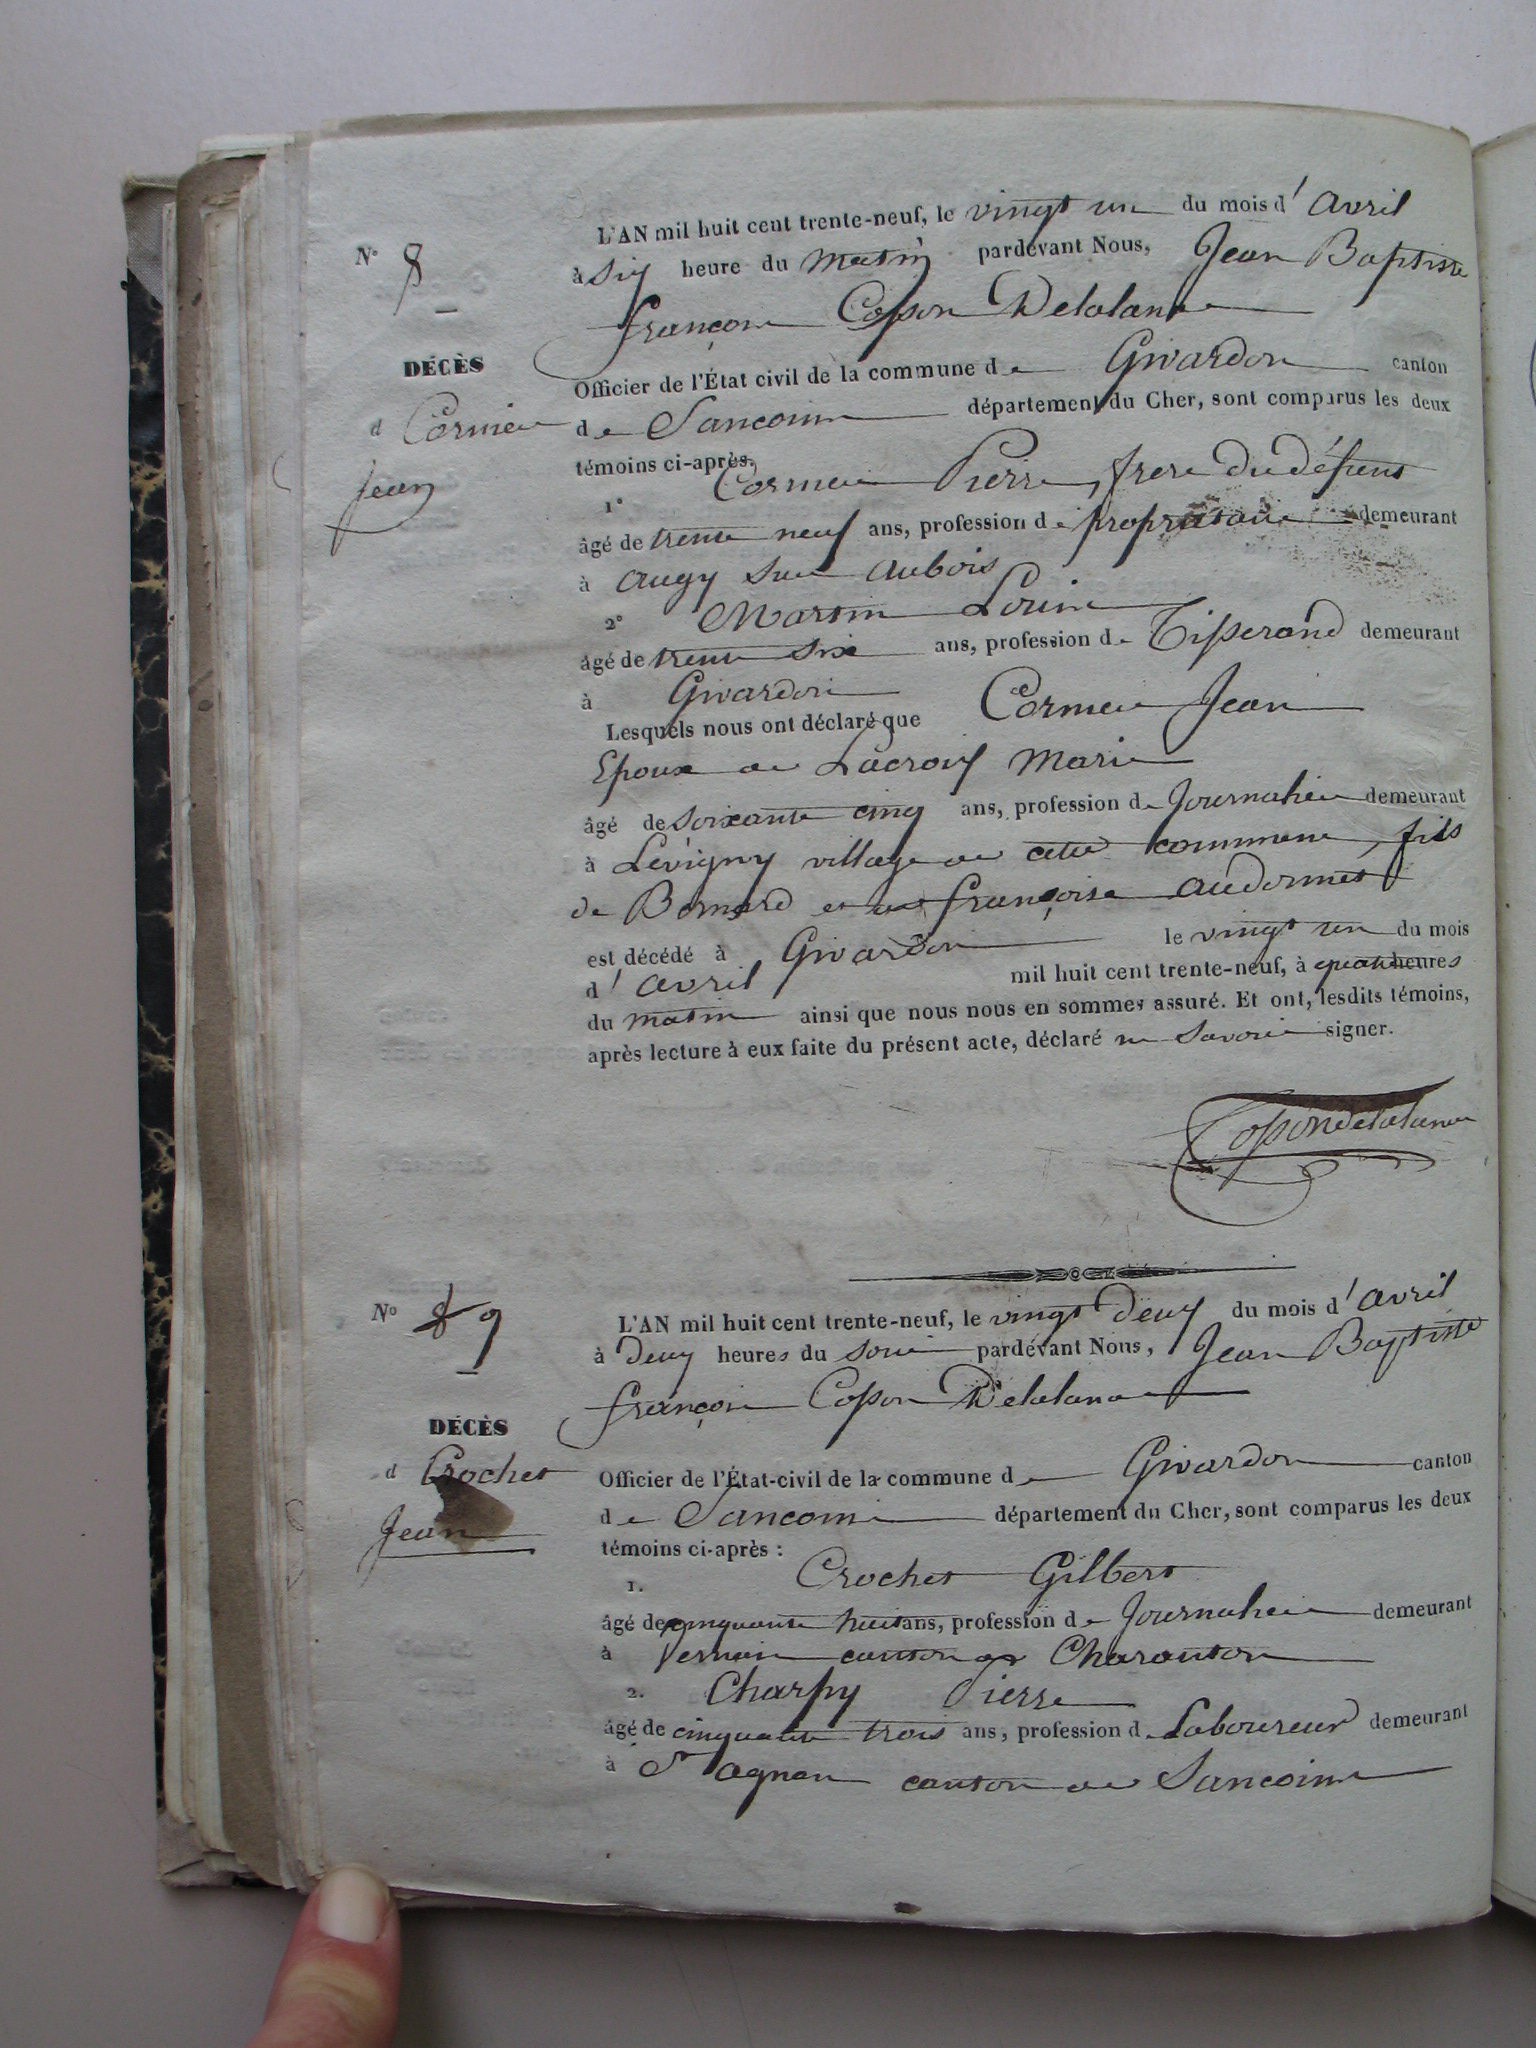 L'AN mil huit cent trente-neuf, le vingt un du mois d'avril
N° 8
à six heure du matin pardevant Nous, Jean Baptiste
françois Copon Delalande
DÉCÈS
Officier de l'État civil de la commune de Givardon canton
d Cormier
de Sancoins département du Cher, sont comparus les deux
témoins ci-après.
Jean
1° Cormier Pierre, frere du défunt
âgé de trente neuf ans, profession de propriétaire demeurant
à augy sur aubois
2° Martin Louis
âgé de trente six ans, profession de Tisserand demeurant
à Givardon
Lesquels nous ont déclaré que Cormier Jean
Epoux de Lacroix Marie
âgé de soixante cinq ans, profession de Journalier demeurant
à Levigny village de cette commune, fils
de Bernard et de françoise audonnet
est décédé à Givardon le vingt un du mois
d'avril mil huit cent trente-neuf, à quatre heures
du matin ainsi que nous nous en sommes assuré. Et ont, lesdits témoins,
après lecture à eux faite du présent acte, déclaré ne savoir signer.
Copondelalande
N° 8 9
L'AN mil huit cent trente-neuf, le vingt deux du mois d'avril
à deux heures du soir pardevant Nous, Jean Baptiste
françois Copon Delalande
DÉCÈS
d Crochet
Officier de l'État-civil de la commune de Givardon canton
de Sancoins département du Cher, sont comparus les deux
Jean
témoins ci-après :
1. Crochet Gilbert
âgé de cinquante huit ans, profession de Journalier demeurant
à Vernais canton de Charanton
2. Charpy Pierre
âgé de cinquante trois ans, profession de Laboureur demeurant
à St agnan canton de Sancoins